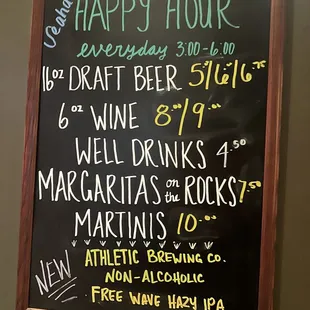 HAPPY HOUR
everyday 3:00-6:00
16oz DRAFT BEER 5/6/6.75
6oz WINE 8.00/9.00
WELL DRINKS 4.50
MARGARITAS on the ROCKS 7.50
MARTINIS 10.00
NEW
ATHLETIC BREWING CO.
NON-ALCOHOLIC
FREE WAVE HAZY IPA